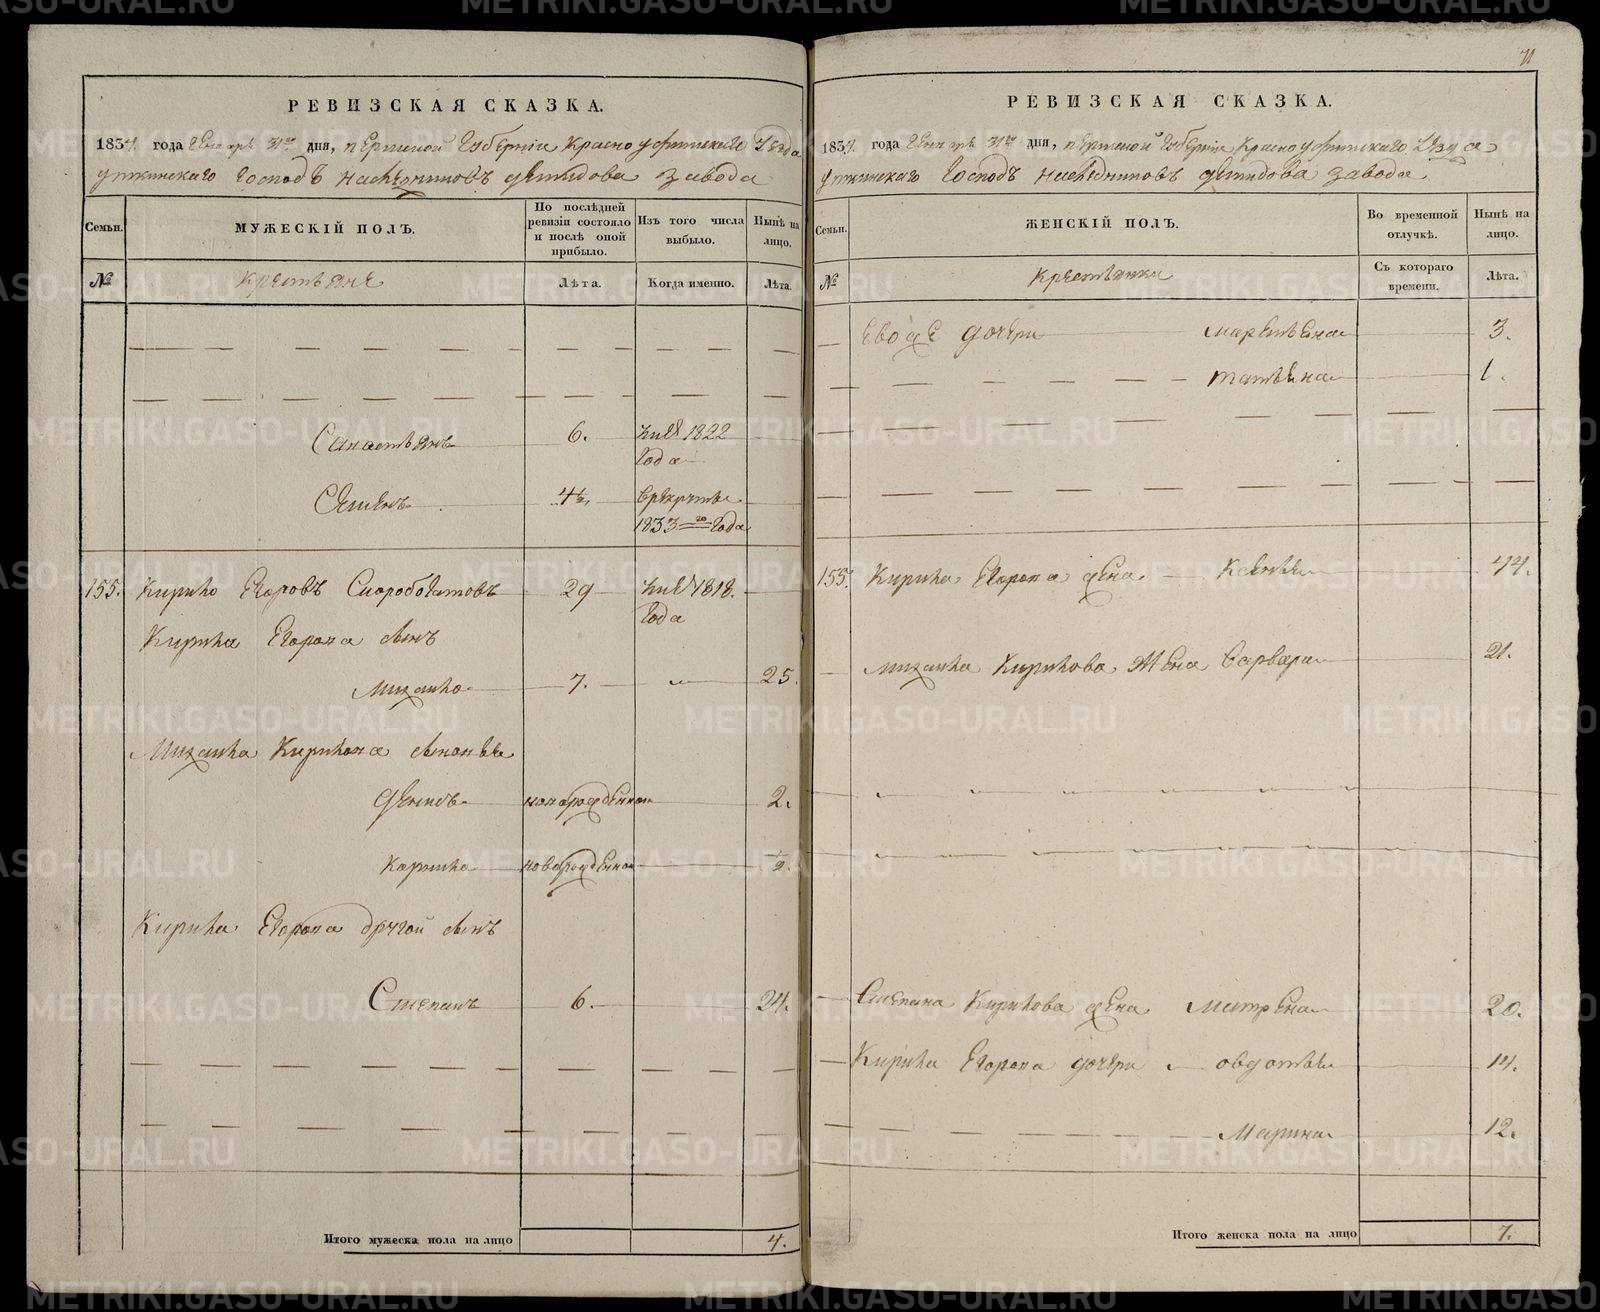 71
РЕВИЗСКАЯ СКАЗКА.
1834 года Генваря 31го дня, Пермской Губернiи Красноуфимскаго Уезда
Уткинскаго Господъ наследниковъ Демидова завода
Семьи.
МУЖЕСКIЙ ПОЛЪ.
По послѣдней ревизiи состояло и послѣ оной прибыло.
Изъ того числа выбыло.
Нынѣ на лицо.
№
Крестьяне
Лѣта.
Когда именно.
Лѣта.
Савастьянъ 6. 1822
года
Семенъ 4½ в рекруты
1833го года
155. Кирило Егоровъ Скоробогатовъ 29 1818.
года
Кирила Егорова сынъ
Михайло 7. 25.
Михайла Кирилова сыновья
Денисъ новорожденной 2.
Карнило новорожденной ½.
Кирила Егорова другой сынъ
Степанъ 6. 24.
Итого мужеска пола на лицо 4.
РЕВИЗСКАЯ СКАЗКА.
1834 года Генваря 31го дня, Пермской Губернiи Красноуфимскаго Уезда
Уткинскаго Господъ наследниковъ Демидова завода
Семьи.
ЖЕНСКIЙ ПОЛЪ.
Во временной отлучкѣ.
Нынѣ на лицо.
№
Крестьянки
Съ котораго времени.
Лѣта.
Ево же дочери Маремьяна 3.
Татьяна 1.
155. Кирила Егорова жена Ксенья 44.
Михайла Кирилова жена Варвара 21.
Степана Кирилова жена Матрена 20.
Кирила Егорова дочери Овдотья 14.
Марина 12.
Итого женска пола на лицо 7.
METRIKI.GASO-URAL.RU